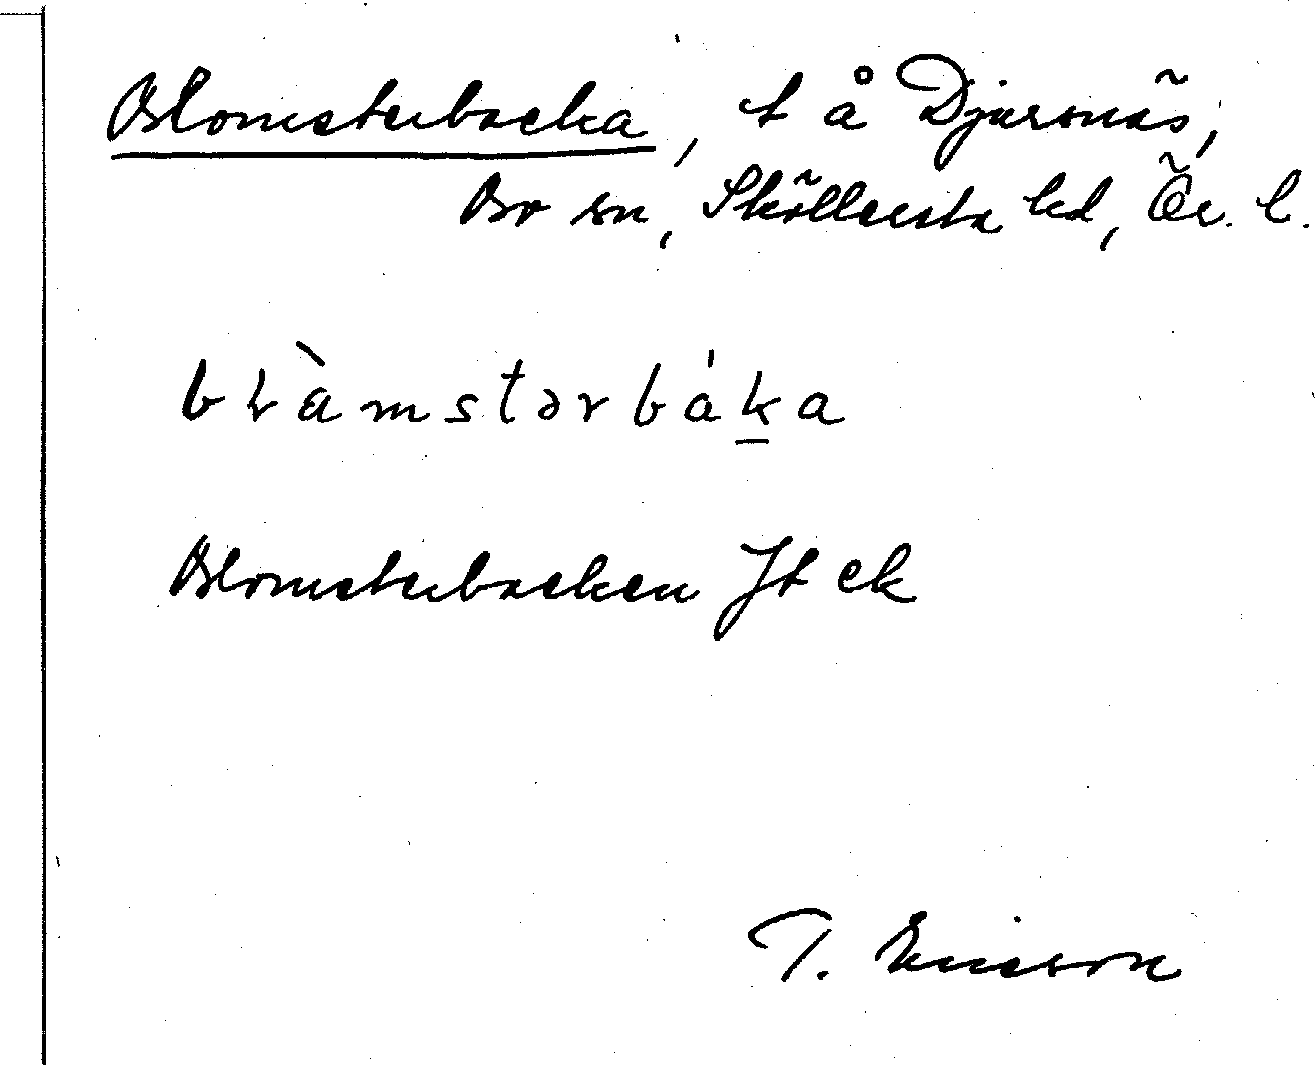 Blomsterbacka, t å Djursnäs,
Bo sn, Sköllersta hd, Ör. l.
bɫàmstərbáka
Blomsterbacken Jt ek
T. Ericson